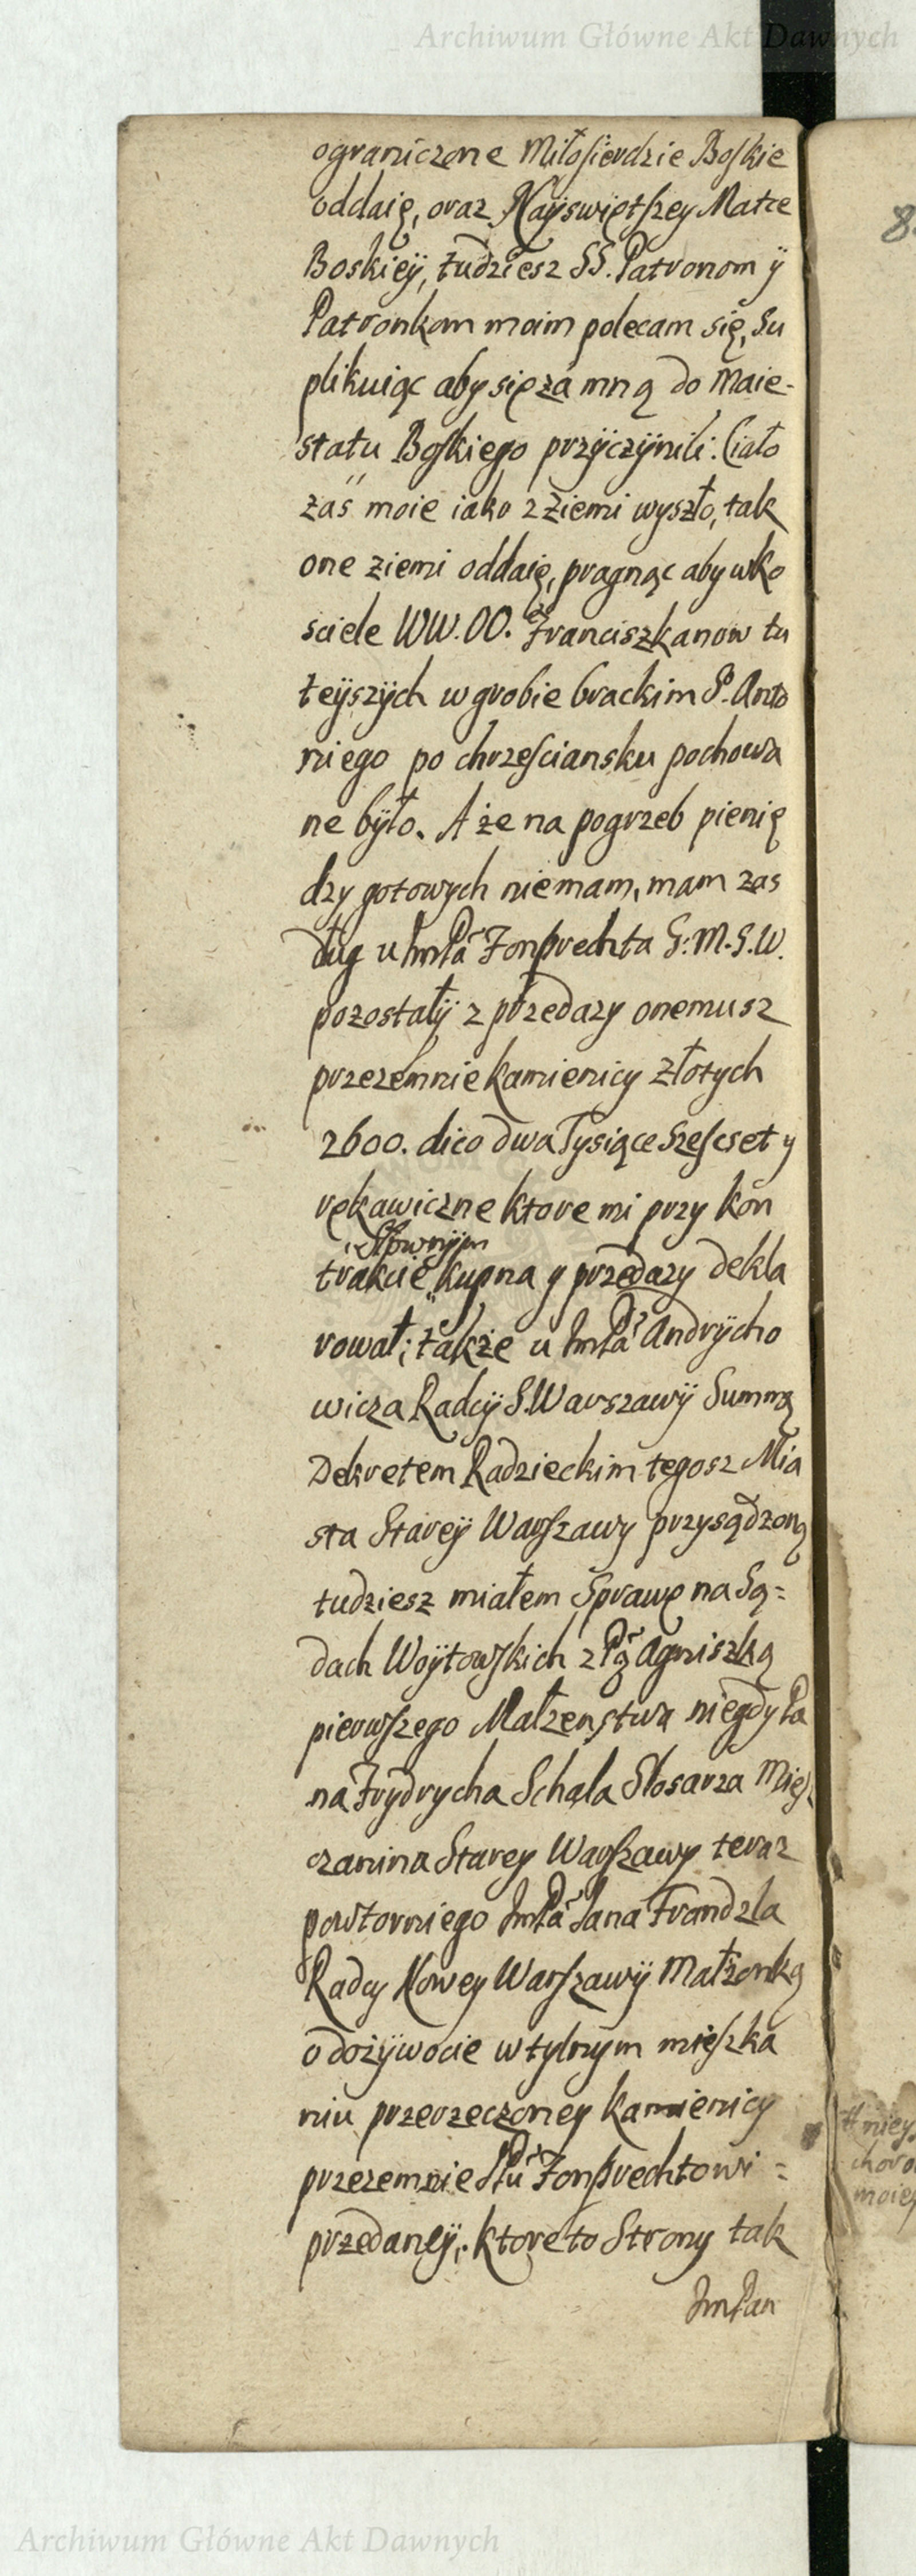 Archiwum Główne Akt Dawnych
ograniczone Miłosierdzie Boskie
oddaię, oraz Nayswiętszey Matce
Boskieÿ, tudziesz SS. Patronom ÿ
Patronkom moim polecam się, Su
plikuiąc aby się za mną do Maie-
statu Boskiego przÿczÿnili. Ciało
zas moie iako z Ziemi wyszło, tak
one ziemi oddaię, pragnąc aby w ko
sciele WW. OO. Franciszkanow tu
teÿszÿch w grobie brackim S. Anto
niego po chrzesciansku pochowa
ne bÿło. A że na pogrzeb pienię
dzy gotowych niemam, mam zas
dług u ImPa Fonprechta G: M. S. W.
pozostałÿ z przedazy onemusz
przezemnie kamienicy Złotych
2600. dico dwa Tysiące Szescset y
rękawiczne ktore mi przy kon
Słownÿm
trakcie kupna y przedazy dekla
rował; także u ImPa Andrÿcho
wicza Radcÿ S. Warszawÿ Summą
Dekretem Radzieckim tegosz Mia
sta Stareÿ Warszawy przysądzoną
tudziesz miałem Sprawę na Są=
dach Woÿtowskich z Pą Agniszką
pierwszego Małzenstwa niegdy Pa
na Frÿdrycha Schala Slosarza Miesz
czanina Starey Warszawy teraz
powtorniego ImPa Jana Frandzla
Radcy Nowey Warszawÿ Małżonką
o dożÿwocie w tylnym mieszka
niu przerzeczoney kamienicy
przezemnie Fonprechtowi =
przedaneÿ, ktore to Strony tak
ImPan
8.
# niey
choro
moiey
Archiwum Główne Akt Dawnych